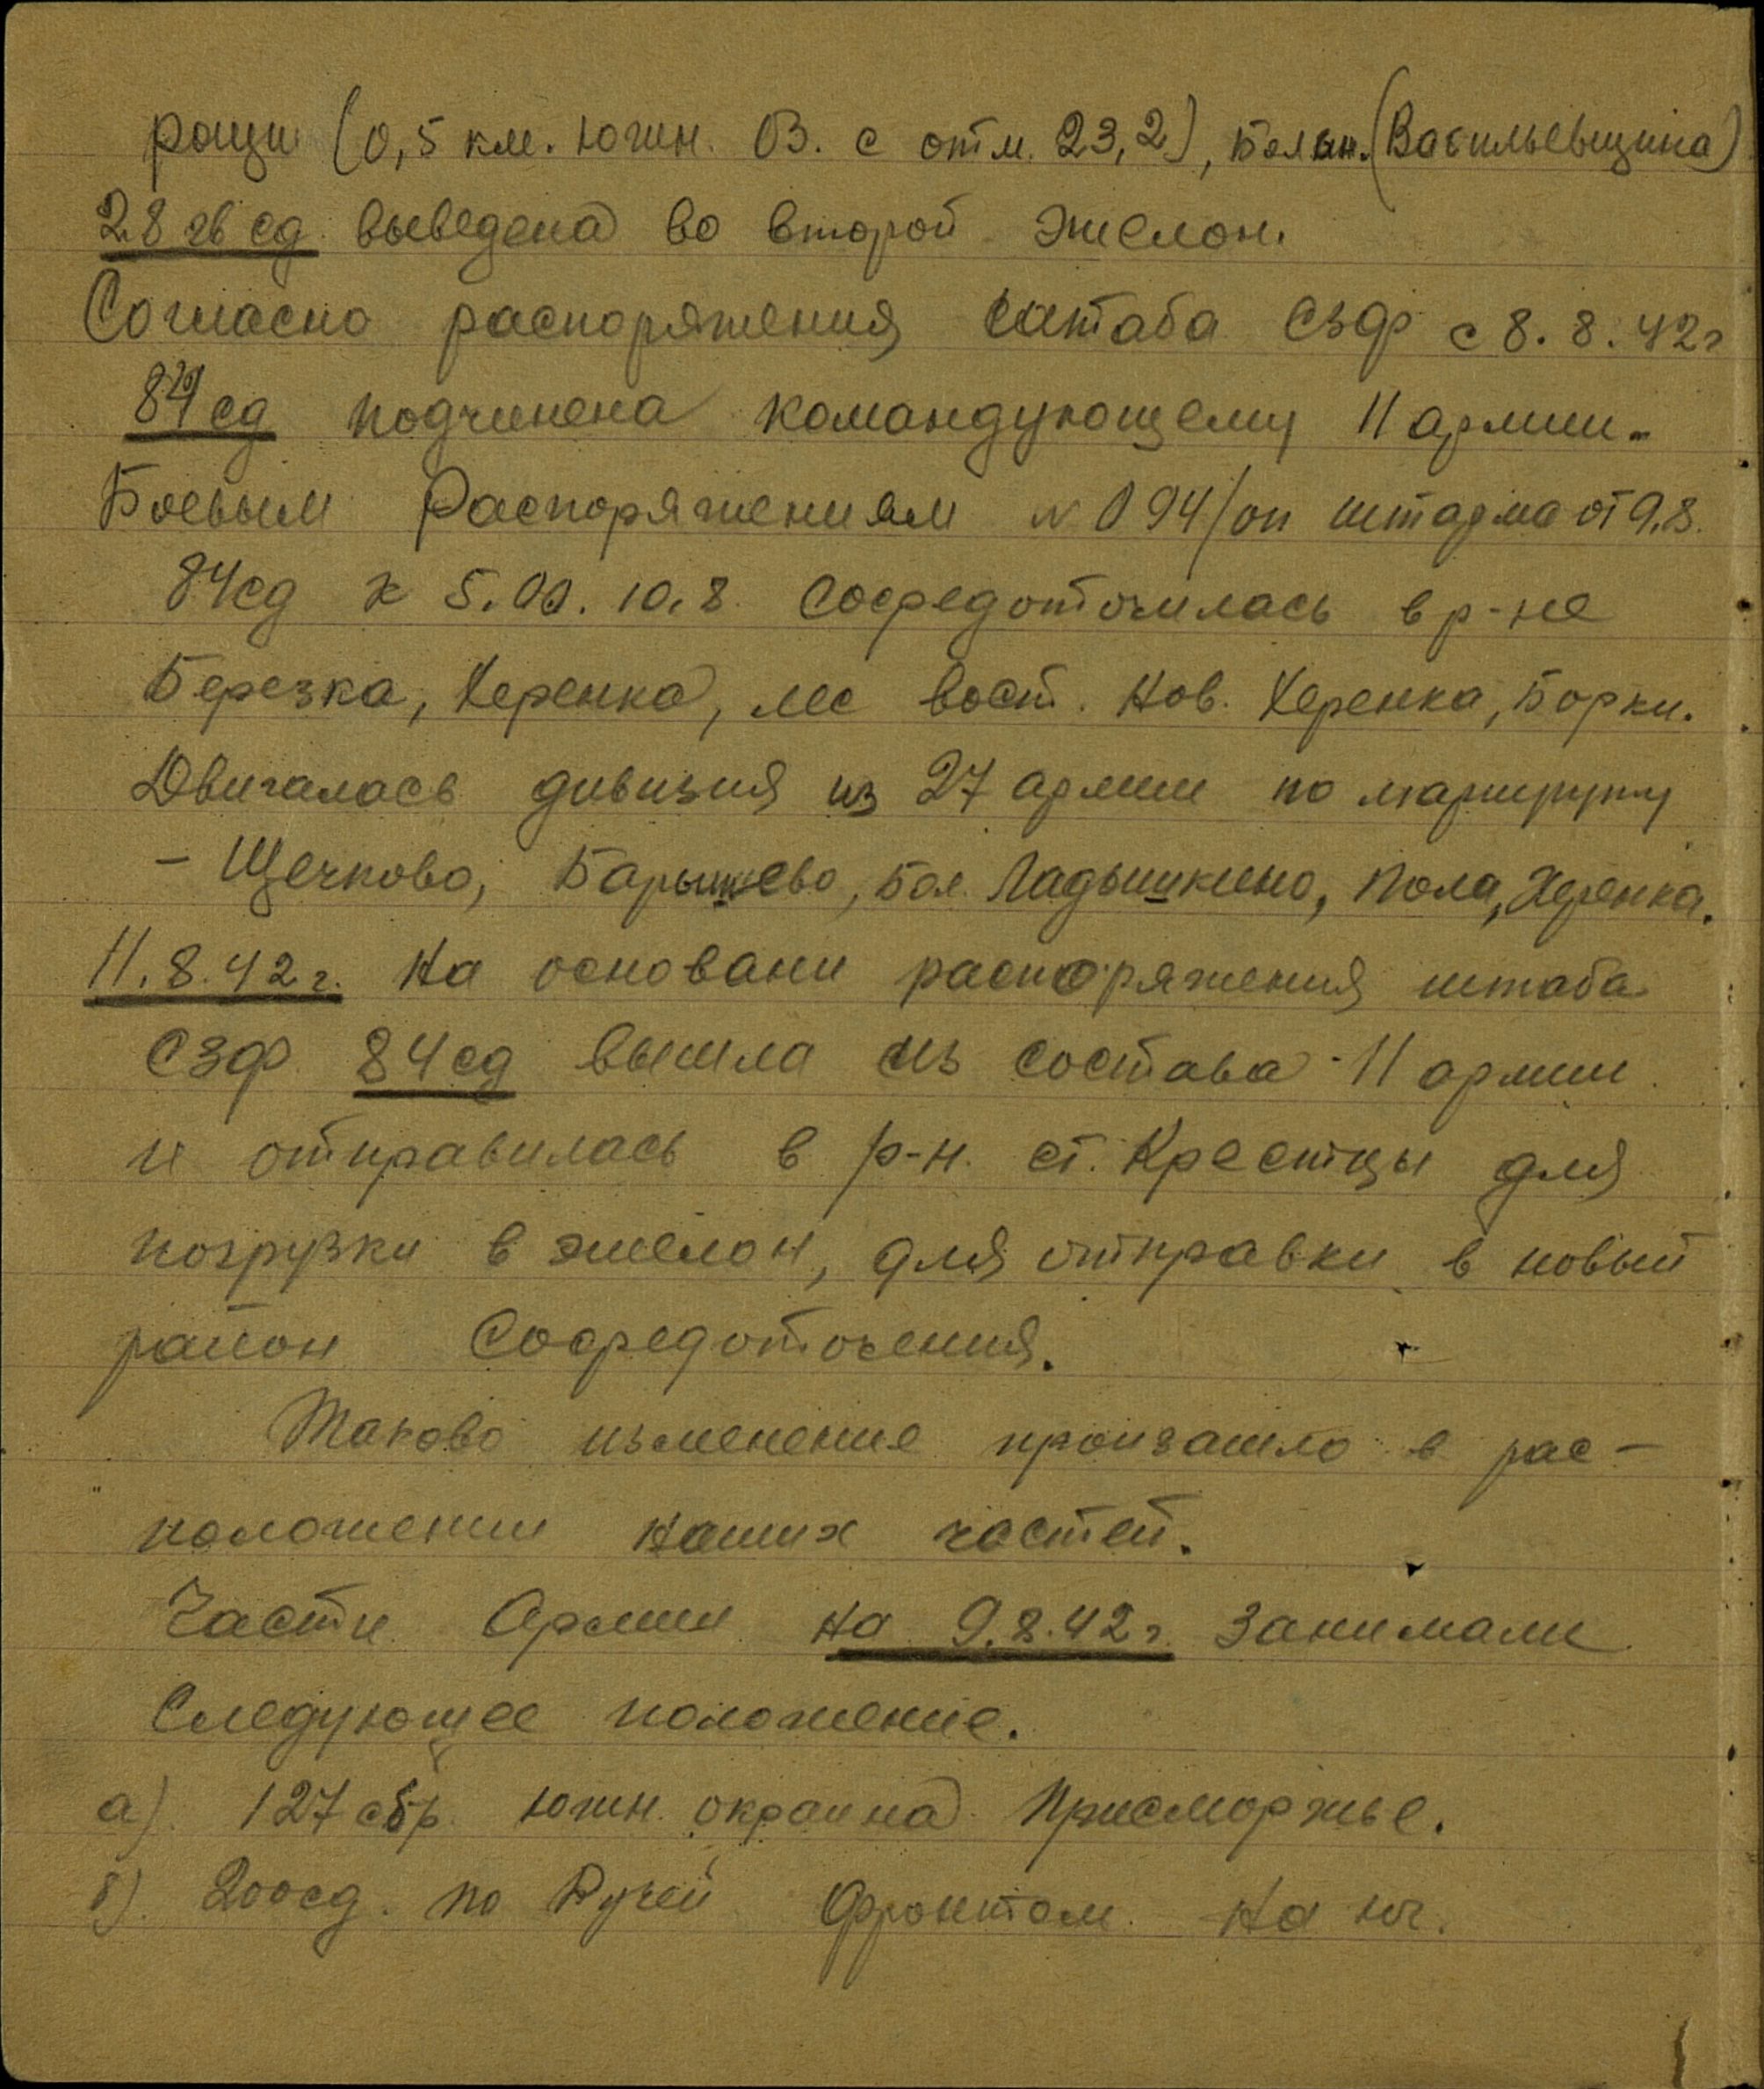 рощи (0,5 км. южн. ОЗ. с отм. 23,2), (Васильевщина)
28 гв сд выведена во второй эшелон.
Согласно распоряжения штаба СЗФ с 8. 8. 42г
84 сд подчинена командующему 11 армии.
Боевым Распоряжениям №094/оп штарма от 9.8.
84сд к 5.00. 10.8. сосредоточилась в р-не
Березка, Херенка, лес вост. Нов. Херенка, Борки.
Двигалась дивизия из 27 армии по маршруту
- Щечково, Барышево, Бол. Ладышкино, Пола, Херенка.
11.8.42г. На основани распоряжения штаба
СЗФ 84сд вышла из состава 11 армии
и отправилась в р-н. ст. Крестцы для
погрузки в эшелон, для отправки в новый
район Сосредоточения.
Таково изменение произашло в рас-
положении наших частей.
Части Армии на 9.8.42г. занимали
Следующее положение.
а). 127 сбр. южн. окраина Присморжье.
б). 200сд. по Ручей Фронтом на юг.